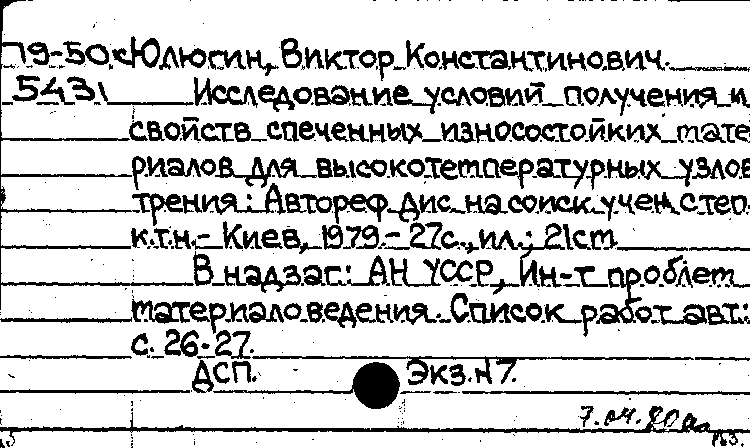 79-50к Юлюгин, Виктор Константинович.
5431 Исследование условий получения и
свойств спеченных износостойких мате
риалов для высокотемпературных узлов
трения: Автореф дис на соиск учен. степ.
к.т.н.- Киев, 1979.- 27с., ил.; 21см
В надзаг: АН УССР, Ин-т проблем
материаловедения. Список работ авт.:
с. 26-27.
ДСП. Экз.№7.
7.04.80